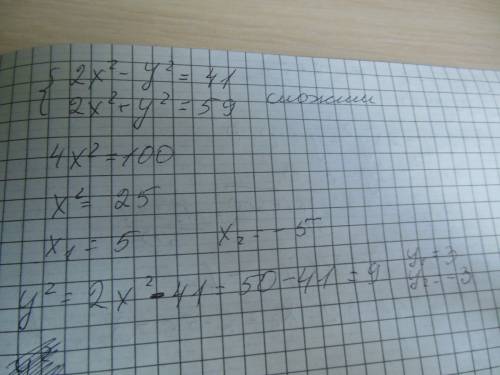 { 2x² - y² = 41
{ 2x² + y² = 59 сложим
4x² = 100
x² = 25
x₁ = 5 x₂ = -5
y² = 2x² - 41 = 50 - 41 = 9 y₁ = 3
y₂ = -3